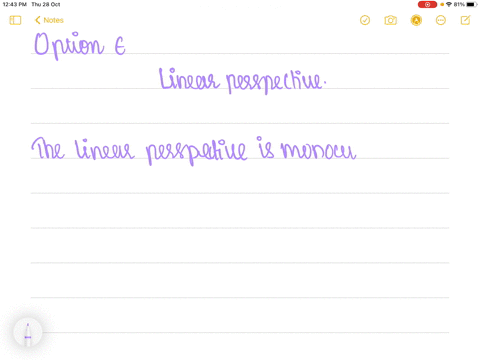 12:43 PM Thu 28 Oct
81%
Notes
Option E
Linear perspective.
The linear perspective is monocu